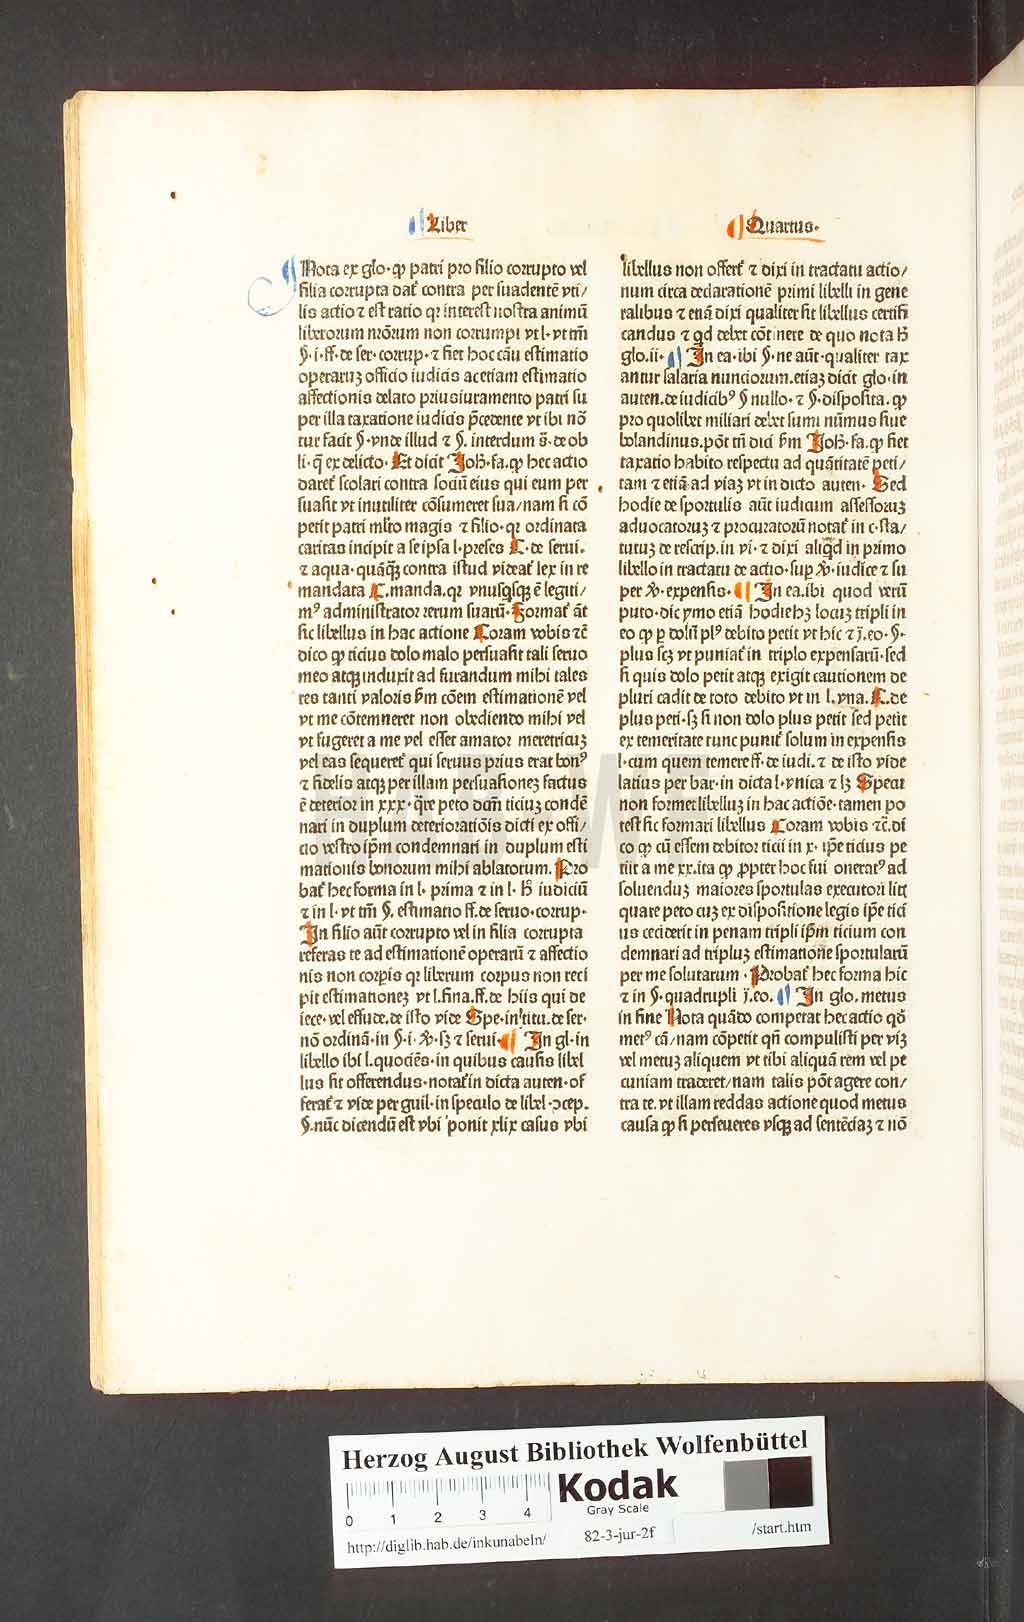 Liber
Quartus.
Nota ex glo. ꝙ patri pro filio corrupto vel
filia corrupta dat͛ contra persuadentē vti/
lis actio ⁊ est ratio qꝛ interest nostra animū
liberorum nr̄orum non corrumpi vt l. vt tm̄
§. i. ff. de ser. corrup. ⁊ fiet hoc cāu estimatio
operaruꝫ officio iudicis ac etiam estimatio
affectionis delato prius iuramento patri su
per illa taxatione iudicis p̄cedente vt ibi nō
tur facit §. vnde illud ⁊ §. interdum s̄. de ob
li. q̄ ex delicto. Et dicit Joh̄. fa. ꝙ hec actio
daret͛ scolari contra sociū eius qui eum per
suasit vt inutiliter cōsumeret sua/nam si cō
petit patri ml̄to magis ⁊ filio. qꝛ ordinata
caritas incipit a se ipsa l. preses C. de serui.
⁊ aqua. quāqꝫ contra istud videat͛ lex in re
mandata C. manda. qꝛ vnusqͥsqꝫ ē legiti/
mꝰ administrator rerum suarū. Format͛ āt
sic libellus in hac actione Coram vobis ⁊c̄
dico ꝙ ticius dolo malo persuasit tali seruo
meo atqꝫ induxit ad furandum mihi tales
res tanti valoris ẜm cōem estimationē vel
vt me cōtemneret non obediendo mihi vel
vt fugeret a me vel esset amator meretricuꝫ
vel eas sequeret͛ qui seruus prius erat bonꝰ
⁊ fidelis atqꝫ per illam persuasioneꝫ factus
ē deterior in xxx. q̄re peto dc̄m ticiuꝫ condē
nari in duplum deterioratiōis dicti ex offi/
cio vestro ip̄m condemnari in duplum esti
mationis bonorum mihi ablatorum. Pro
bat͛ hec forma in l. prima ⁊ in l. h̄ iudiciū
⁊ in l. vt tm̄ §. estimatio ff. de seruo. corrup.
In filio aūt corrupto vel in filia corrupta
referas te ad estimationē operarū ⁊ affectio
nis non corꝑis qꝛ liberum corpus non reci
pit estimationeꝫ vt l. fina. ff. de hiis qui de
iece. vel effude. de isto vide Spe. in titu. de ser.
nō ordinā. in §. i. ꝟ. sꝫ ⁊ serui. In gl. in
libello ibi l. quociēs. in quibus causis libel
lus sit offerendus. notat͛ in dicta auten. of
ferat͛ ⁊ vide per guil. in speculo de libel. ↄcep.
§. nūc dicendū est vbi ponit xlix casus vbi
libellus non offert͛ ⁊ dixi in tractatu actio/
num circa declarationē primi libelli in gene
ralibus ⁊ etiā dixi qualiter sit libellus certifi
candus ⁊ qd̄ debet cōtinere de quo nota h̄
glo. ii. In ea. ibi §. ne aūt. qualiter tax
antur salaria nunciorum. etiaꝫ dicit glo. in
auten. de iudicibꝰ § nullo. ⁊ §. disposita. ꝙ
pro quolibet miliari debet sumi nūmus siue
bolandinus. pōt tn̄ dici ẜm Joh̄. fa. ꝙ fiet
taxatio habito respectu ad quātitatē peti/
tam ⁊ etiā ad viaꝫ vt in dicto auten. Sed
hodie de sportulis aūt iudicum assessoruꝫ
aduocatoruꝫ ⁊ procuratorū notat͛ in c. sta/
tutuꝫ de rescrip. in vi. ⁊ dixi aliqd̄ in primo
libello in tractatu de actio. suꝑ ꝟ. iudice ⁊ su
per ꝟ. expensis. In ea. ibi quod verū
puto. dic ymo etiā hodie hꝫ locuꝫ tripli in
eo ꝙ ꝑ dolū plꝰ debito petit vt hic ⁊ j̄. eo. §.
plus scꝫ vt puniat͛ in triplo expensarū. sed
si quis dolo petit atqꝫ exigit cautionem de
pluri cadit de toto debito vt in l. vna. C. de
plus peti. sꝫ si non dolo plus petit sed petit
ex temeritate tunc punit͛ solum in expensis
l. cum quem temere ff. de iudi. ⁊ de isto vide
latius per bar. in dicta l. vnica ⁊ lꝫ Specu.
non formet libelluꝫ in hac actiōe. tamen po
test sic formari libellus Coram vobis ⁊c̄. di
co ꝙ cū essem debitor ticii in x. ip̄e ticius pe
tiit a me xx. ita ꝙ ꝓpter hoc fui oneratꝰ ad
soluenduꝫ maiores sportulas executori litꝭ
quare peto cuꝫ ex dispositione legis ip̄e tici
us ceciderit in penam tripli ip̄m ticium con
demnari ad tripluꝫ estimatione sportularū
per me solutarum. Probat͛ hec forma hic
⁊ in §. quadrupli j̄. eo. In glo. metus
in fine Nota quādo comperat hec actio qō
metꝰ cā/nam cōpetit qn̄ compulisti per viꝫ
vel metuꝫ aliquem vt tibi aliquā rem vel pe
cuniam traderet/nam talis pōt agere con/
tra te. vt illam reddas actione quod metus
causa ꝙ si perseueres vsqꝫ ad sentēciaꝫ ⁊ nō
HAB WF
Herzog August Bibliothek Wolfenbüttel
0 1 2 3 4
Kodak
Gray Scale
http://diglib.hab.de/inkunabeln/
82-3-jur-2f
/start.htm